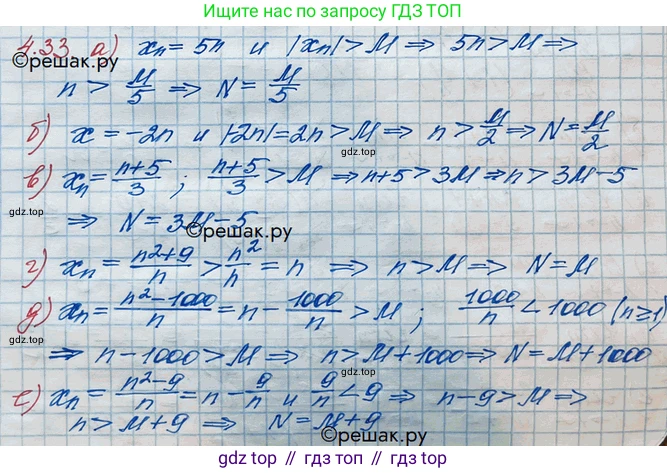 Ищите нас по запросу ГДЗ ТОП
4.33 а) xₙ = 5n и |xₙ| > M ⇒ 5n > M ⇒
©решак.ру
n > M/5 ⇒ N = M/5
б) x = -2n и |-2n| = 2n > M ⇒ n > M/2 ⇒ N = M/2
gdz.top
gdz.top
в) xₙ = (n+5)/3 ; (n+5)/3 > M ⇒ n+5 > 3M ⇒ n > 3M-5
gdz.top
⇒ N = 3M-5
©решак.ру
г) xₙ = (n²+9)/n > n²/n = n ⇒ n > M ⇒ N = M
д) xₙ = (n²-1000)/n = n - 1000/n > M ; 1000/n < 1000 (n≥1)
gdz.top
⇒ n-1000 > M ⇒ n > M+1000 ⇒ N = M+1000
е) xₙ = (n²-9)/n = n - 9/n и 9/n < 9 ⇒ n-9 > M ⇒
gdz.top
n > M+9 ⇒ N = M+9
©решак.ру
gdz top // гдз топ // gdz top